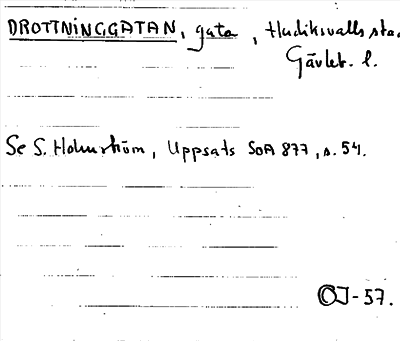 DROTTNINGGATAN, gata, Hudiksvalls sta
Gävleb. l.
Se S. Holmström, Uppsats SOA 877, s. 54.
OJ-57.